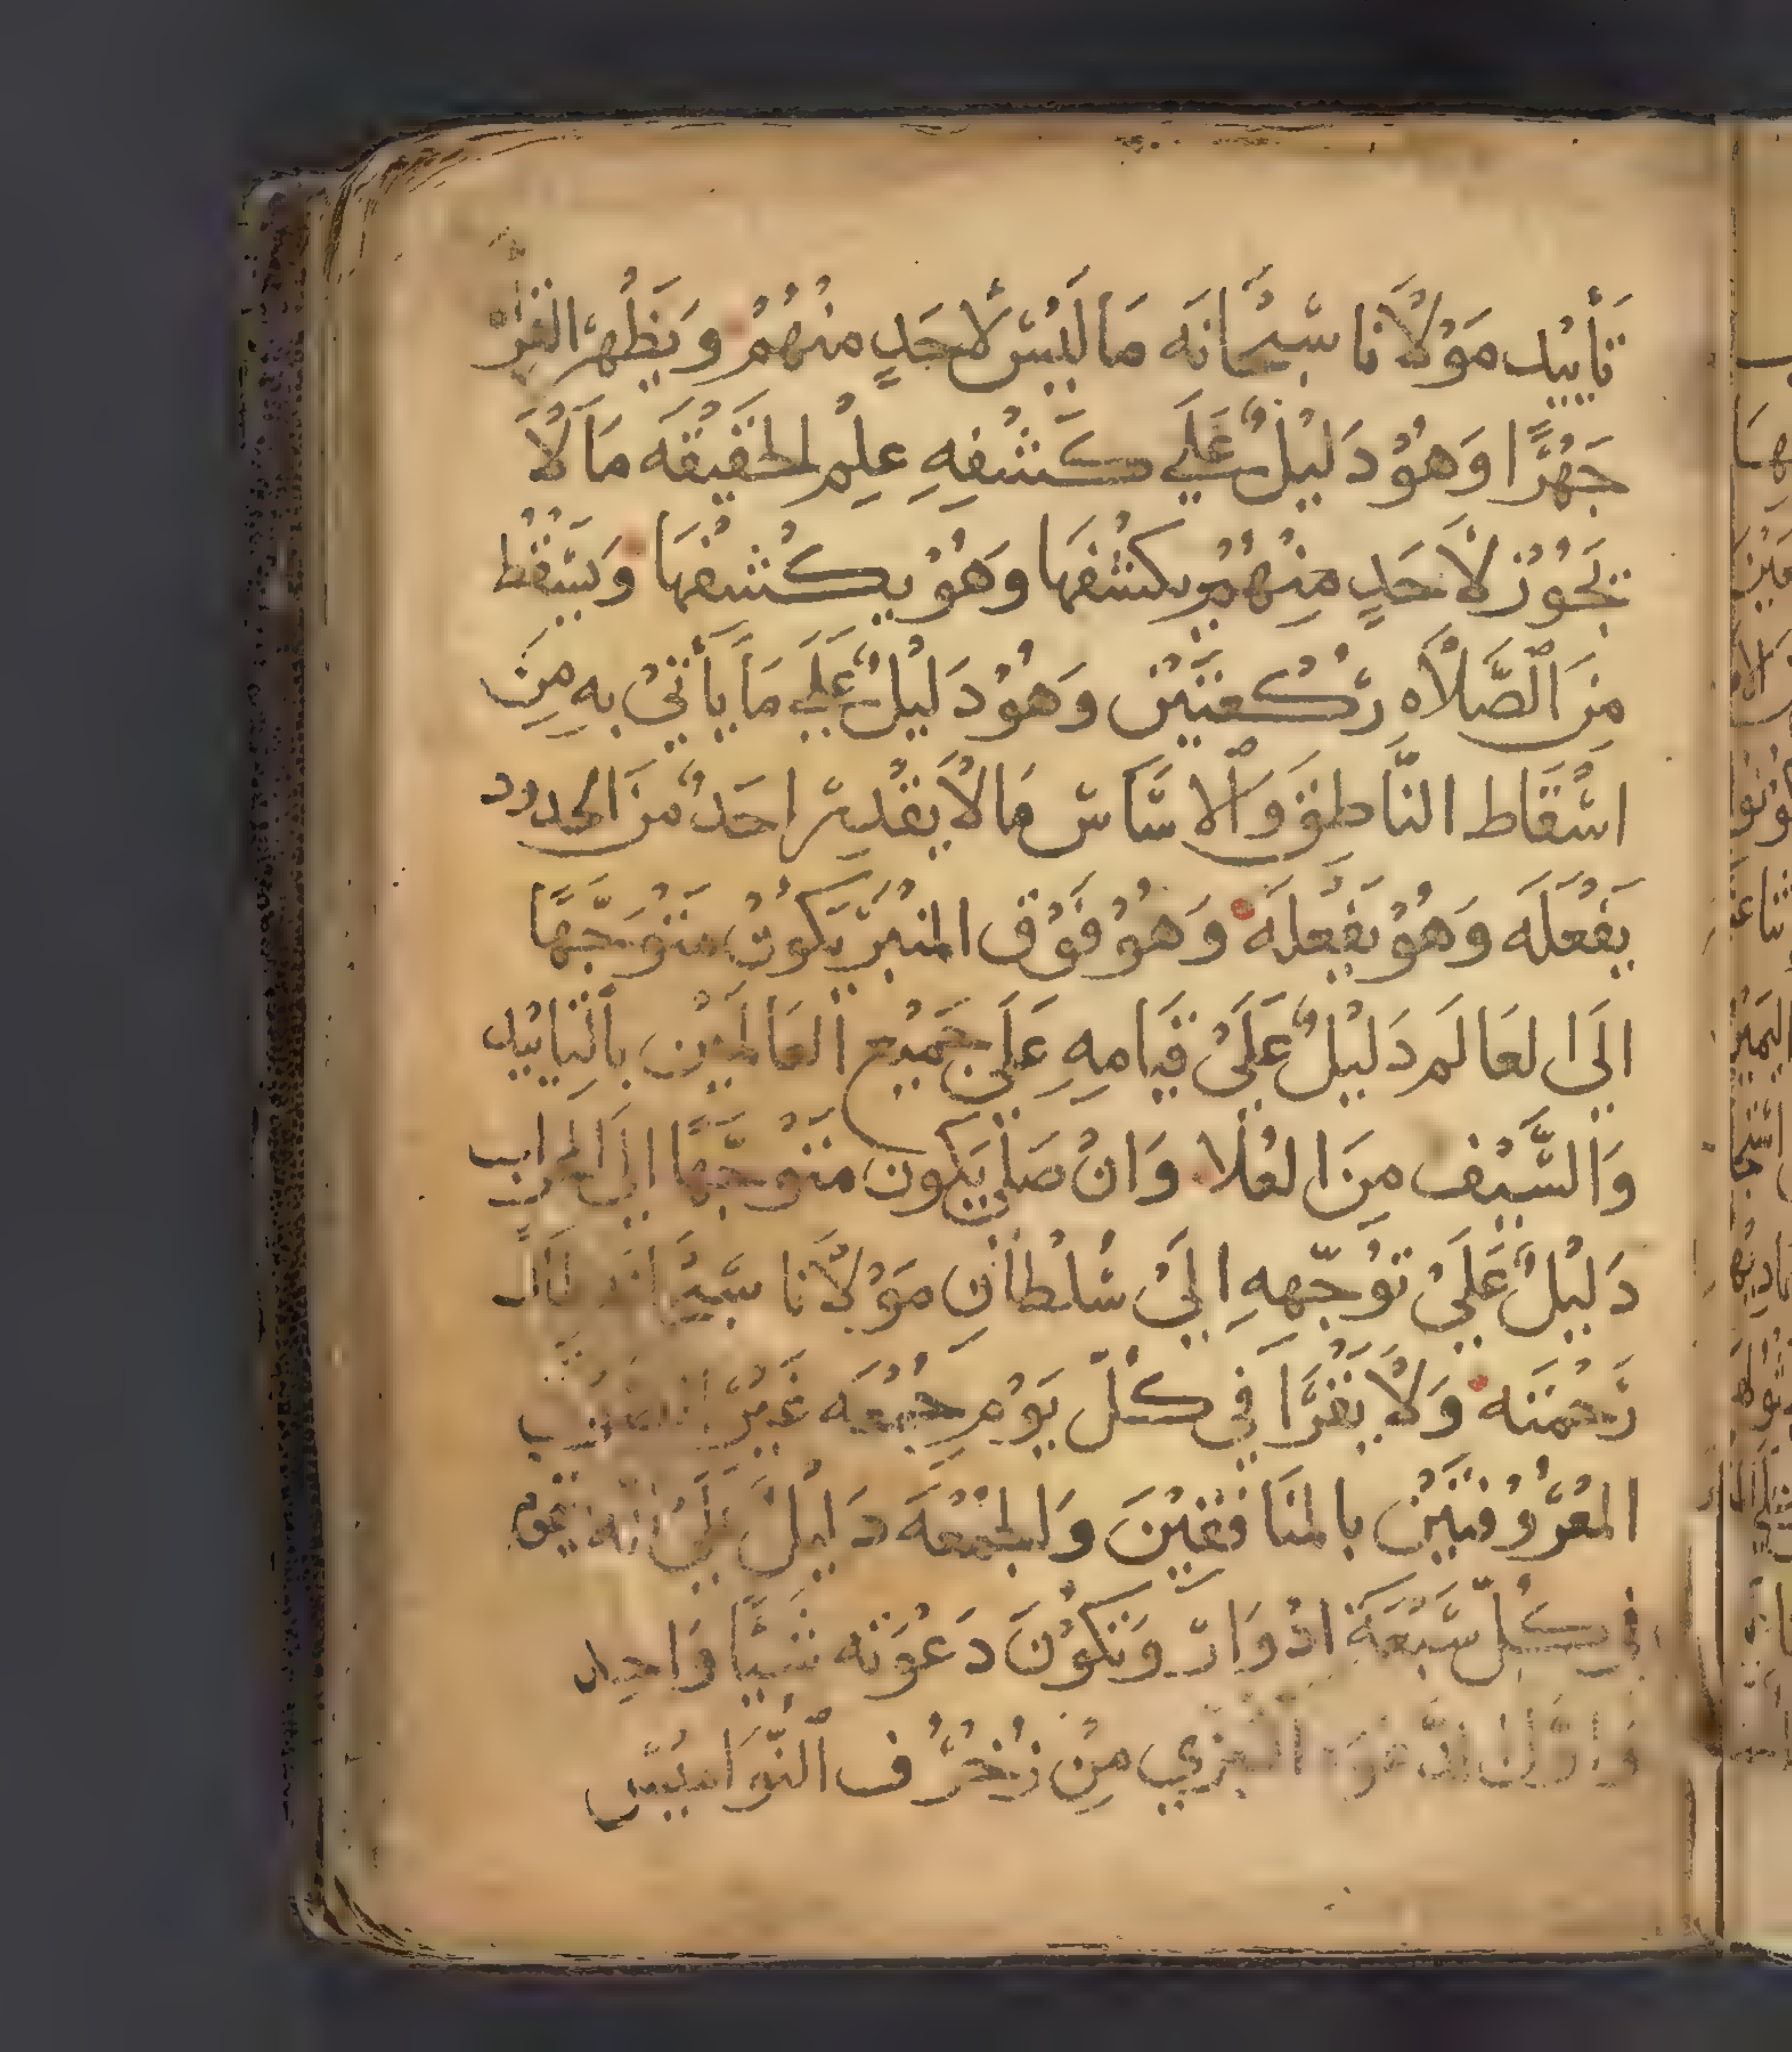 تَأييْد مَوْلَانا سُبْحَانَه مَا لَيْسَ لأحَدٍ منْهُمْ وَيَظْهر
جَهْرًا وَهُوْ دَليْلٌ عَلَي كَشْفِهِ عِلِمْ الحَقيْقَه مَا لَا
يَجُوْز لأحَدٍ مِنْهُمْ يكشْفهَا وَهُوْ يكْشفْهَا وَيسْقْط
مِنَ ٱلصَّلَاه رَكْعتَيْن وَهُوْ دَليْلٌ عَلَي مَا يَأتيْ بِه مِنَ
اسْقَاط النَّاطِق وَٱلاسَّاسْ مَا لَا يَقْدِر احَدٌ منَ الحدود
يَفْعَلَه وَهُوْ يَفْعَلَه وَهُوْ فَوْق المنْبرْ يَكُوْن متَوْجَّهًا
الَي العَالَم دَليْلٌ عَلَيْ قيَامهِ عَلَي جَميْع العَالَميْن بِالتَّأييْد
وَالسَّيْف مِنَ العُلَا وَانْ صَلَّي يَكون متَوْجّهًا الَي المحراب
دَليْلٌ عَلَيْ تَوُجّههِ الَيْ سُلْطَانِ مَوْلَانا سُبْحَانَه
رَحْمتَه وَلَا يَقْرَا في كُلّ يَوْم جُمْعَه غَيْر
المعْرُوْفتَيْن بالمنَافقيْنَ وَالجمْعَه دَليْلٌ عَلَيْ انّه يَقوم
في كُلّ سَبْعَة ادْوَارْ وَتكُوْنَ دَعْوَته شَيًا وَاحِد
مِنْ زُخْرُف ٱلنَّوَاميْسْ